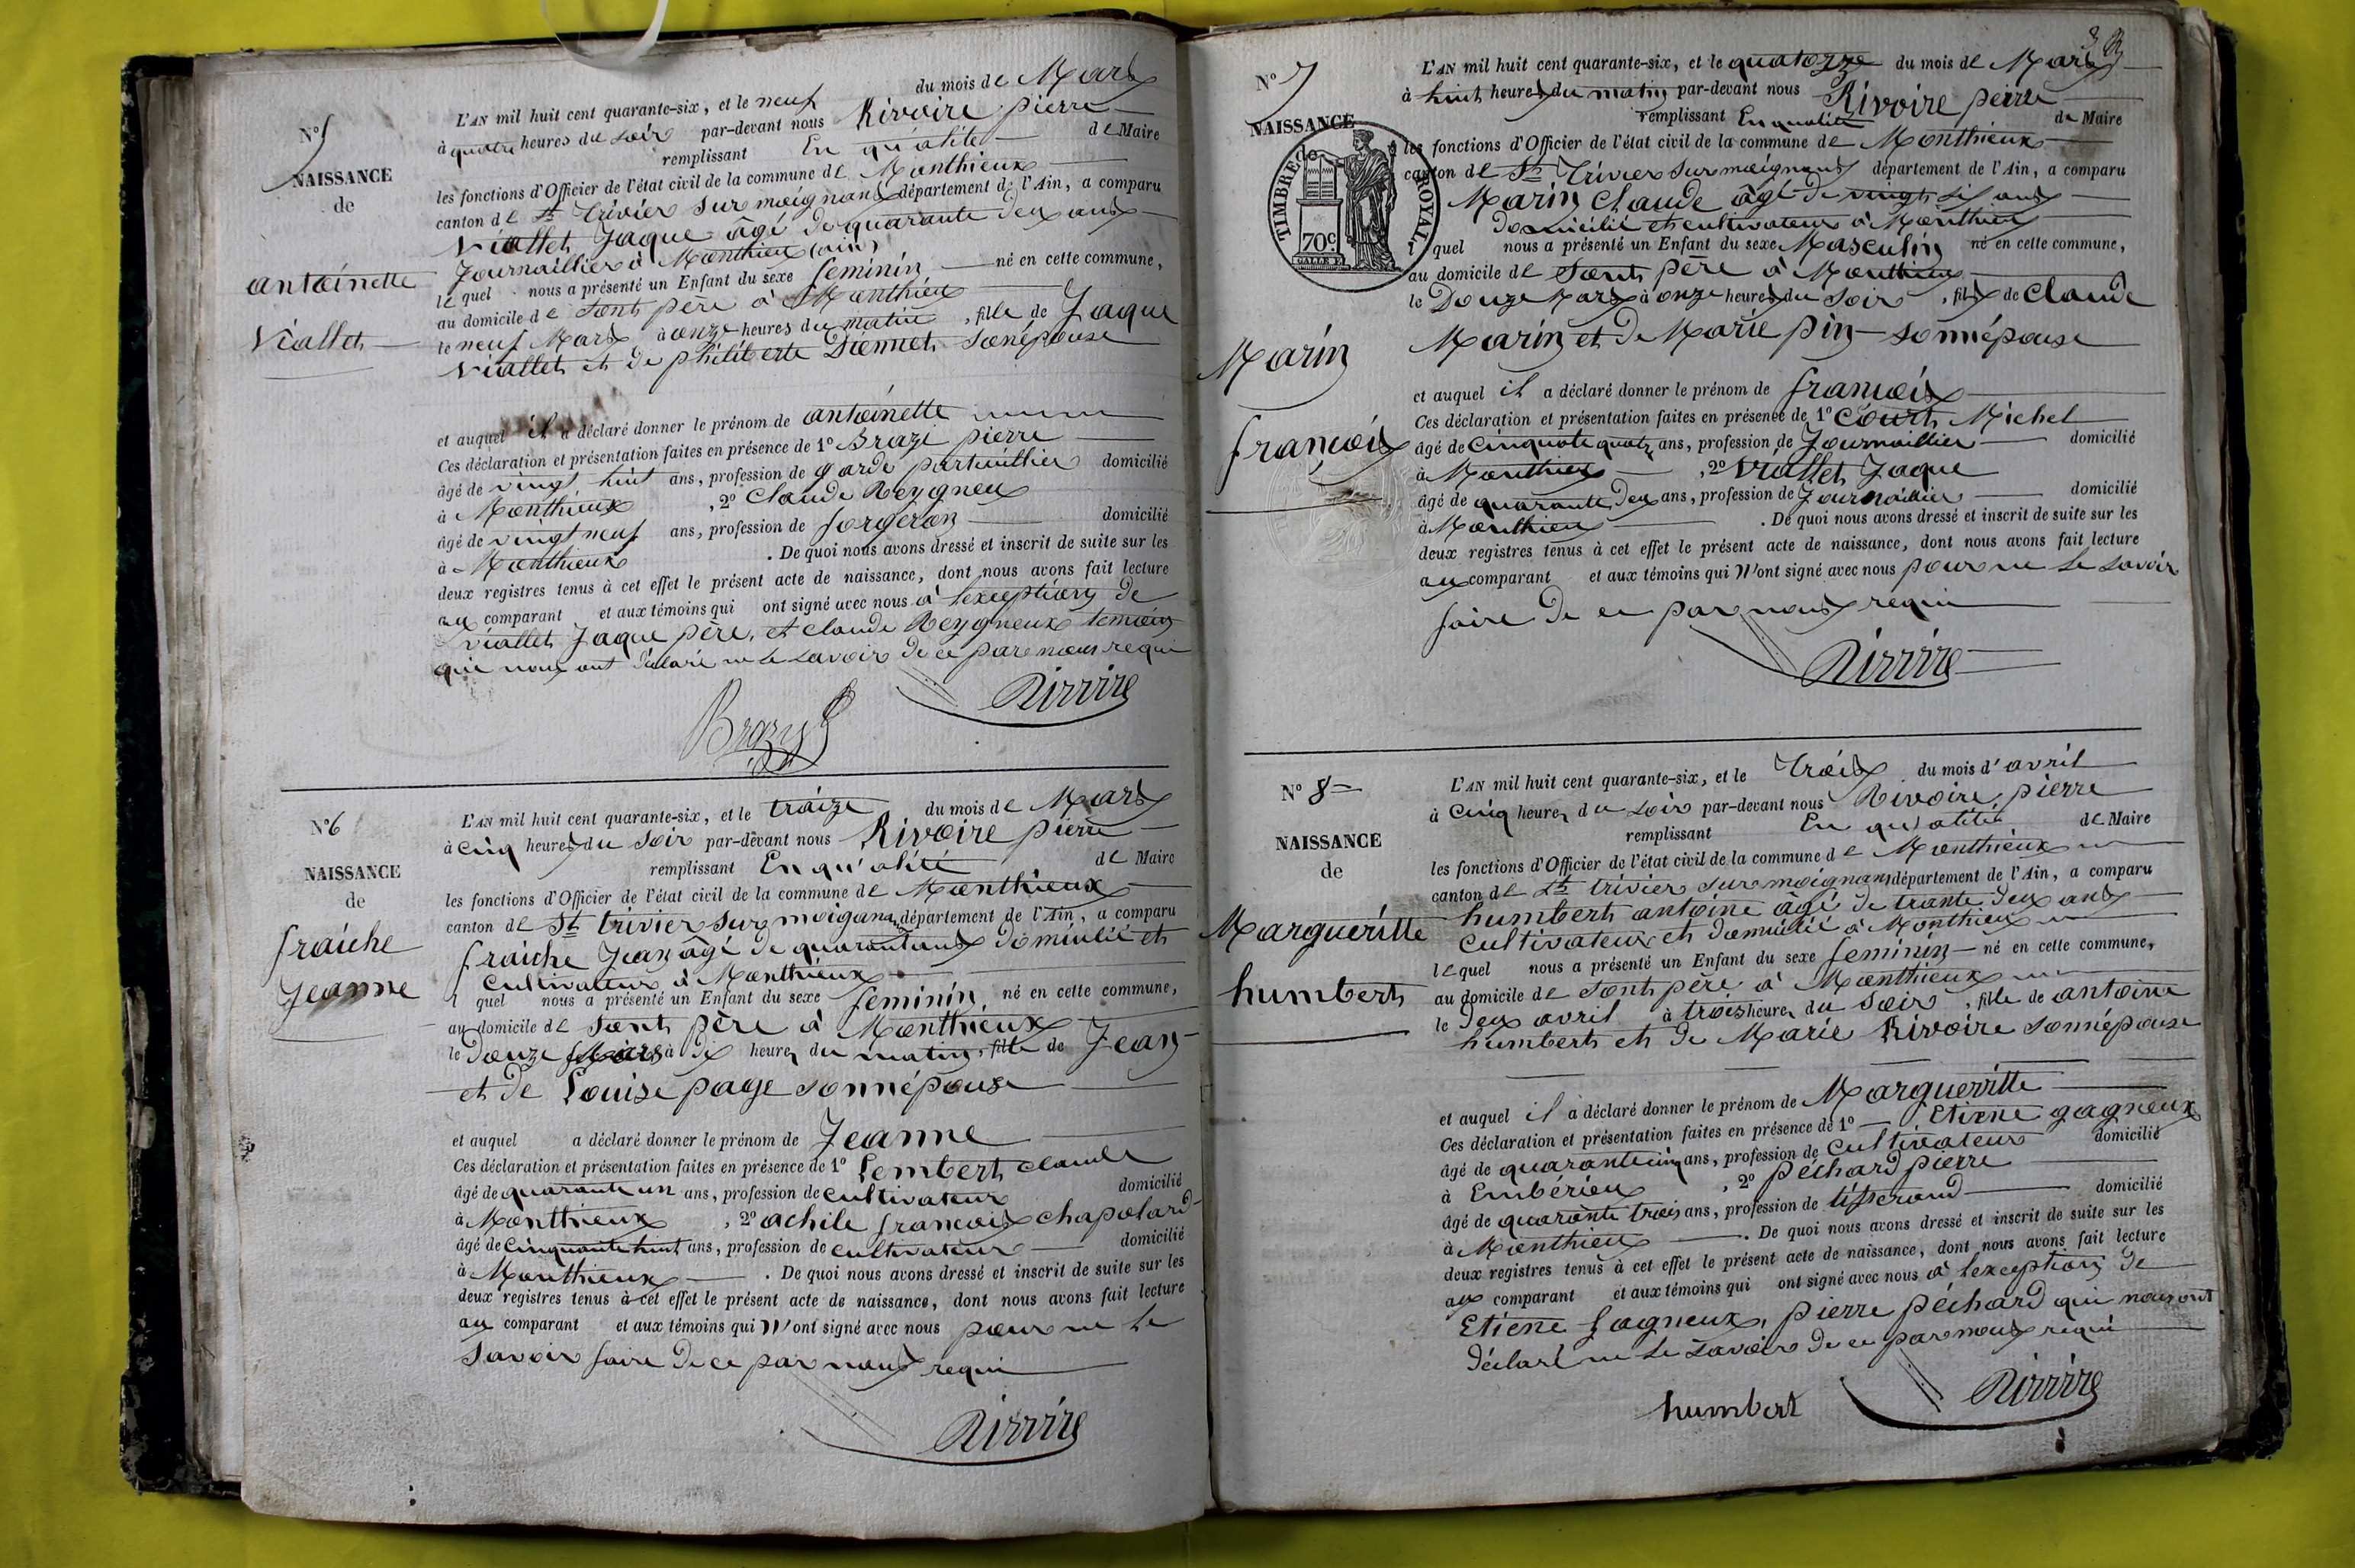 N° 5
NAISSANCE
de
antoinette
Viallet
L'AN mil huit cent quarante-six, et le neuf du mois de Mars
à quatre heures du soir par-devant nous Rivoire pierre
remplissant En qu'alité de Maire
les fonctions d'Officier de l'état civil de la commune de Monthieux
canton de St trivier sur moignans département de l'Ain, a comparu
Viallet Jaque âgé de quarante deux ans
Journaillier à Monthieux (ain)
le quel nous a présenté un Enfant du sexe feminin né en cette commune,
au domicile de sont père à Monthieux
le neuf Mars à onze heures du matin, fille de Jaque
Viallet et de philiberte Diennet sonépouse
et auquel il a déclaré donner le prénom de antoinette
Ces déclaration et présentation faites en présence de 1° Brazi pierre
âgé de vingt huit ans, profession de garde partuillier domicilié
à Monthieux , 2° Claude Reygneux
âgé de vingt neuf ans, profession de forgeron domicilié
à Monthieux . De quoi nous avons dressé et inscrit de suite sur les
deux registres tenus à cet effet le présent acte de naissance, dont nous avons fait lecture
au comparant et aux témoins qui ont signé avec nous à l'exception de
viallet Jaque père, et claude Reygneux temoin
qui nous ont déclaré ne le savoir de ce par nous requi
Rivoire
N° 6
NAISSANCE
de
fraiche
Jeanne
L'AN mil huit cent quarante-six, et le traize du mois de Mars
à cinq heures du soir par-devant nous Rivoire pierre
remplissant En qu'alité de Maire
les fonctions d'Officier de l'état civil de la commune de Monthieux
canton de St trivier sur moignans département de l'Ain, a comparu
fraiche Jean âgé de quarantans domicilié et
Cultivateur à Monthieux
l quel nous a présenté un Enfant du sexe feminin, né en cette commune,
au domicile de sont père à Monthieux
le douze Mars à dix heures du matin, fille de Jean
et de Louise page sonnépouse
et auquel a déclaré donner le prénom de Jeanne
Ces déclaration et présentation faites en présence de 1° Lembert claude
âgé de quarante un ans, profession de cultivateur domicilié
à Monthieux , 2° achile francois chapolard
âgé de cinquante huit ans, profession de cultivateur domicilié
à Monthieux . De quoi nous avons dressé et inscrit de suite sur les
deux registres tenus à cet effet le présent acte de naissance, dont nous avons fait lecture
au comparant et aux témoins qui N'ont signé avec nous pour ne le
savoir faire de ce par nous requi
Rivoire
N° 7
NAISSANCE
de
TIMBRE ROYAL
70c
Marin
francois
L'AN mil huit cent quarante-six, et le quatorze du mois de Mars
à huit heures du matin par-devant nous Rivoire pierre
remplissant En qualité de Maire
les fonctions d'Officier de l'état civil de la commune de Monthieux
canton de St Trivier sur moignans département de l'Ain, a comparu
Marin Claude âgé de vingt six ans
domicilié et cultivateur à Monthieux
l quel nous a présenté un Enfant du sexe Masculin né en cette commune,
au domicile de sont père à Monthieux
le Douze Mars à onze heures du soir , fils de claude
Marin et de Marie pin sonnépouse
et auquel il a déclaré donner le prénom de francois
Ces déclaration et présentation faites en présence de 1° Court Michel
âgé de cinquate quatre ans, profession de Journaillier domicilié
à Monthieux , 2° Viallet Jaque
âgé de quarante deux ans, profession de Journaillier domicilié
à Monthieux . De quoi nous avons dressé et inscrit de suite sur les
deux registres tenus à cet effet le présent acte de naissance, dont nous avons fait lecture
au comparant et aux témoins qui N'ont signé avec nous pour ne le savoir
faire de ce par nous requi
Rivoire
N° 8
NAISSANCE
de
Margueritte
humbert
L'AN mil huit cent quarante-six, et le trois du mois d'avril
à cinq heures du soir par-devant nous Rivoire pierre
remplissant En qu'alité de Maire
les fonctions d'Officier de l'état civil de la commune de Monthieux
canton de St trivier sur moignans département de l'Ain, a comparu
humbert antoine âgé de trante deux ans
cultivateur et domicilié à Monthieux
lequel nous a présenté un Enfant du sexe feminin né en cette commune,
au domicile de sont père à Monthieux
le deux avril à trois heures du soir, fille de antoine
humbert et de Marie Rivoire sonnépouse
et auquel il a déclaré donner le prénom de Margueritte
Ces déclaration et présentation faites en présence de 1° Etiene gagneux
âgé de quarantecinq ans, profession de cultivateur domicilié
à Embérieux , 2° péchard pierre
âgé de quarante trois ans, profession de tisserand domicilié
à Monthieux . De quoi nous avons dressé et inscrit de suite sur les
deux registres tenus à cet effet le présent acte de naissance, dont nous avons fait lecture
aux comparant et aux témoins qui ont signé avec nous à l'exception de
Etiene gagneux, pierre péchard qui nous ont
déclaré ne le savoir de ce par nous requi
humbert Rivoire